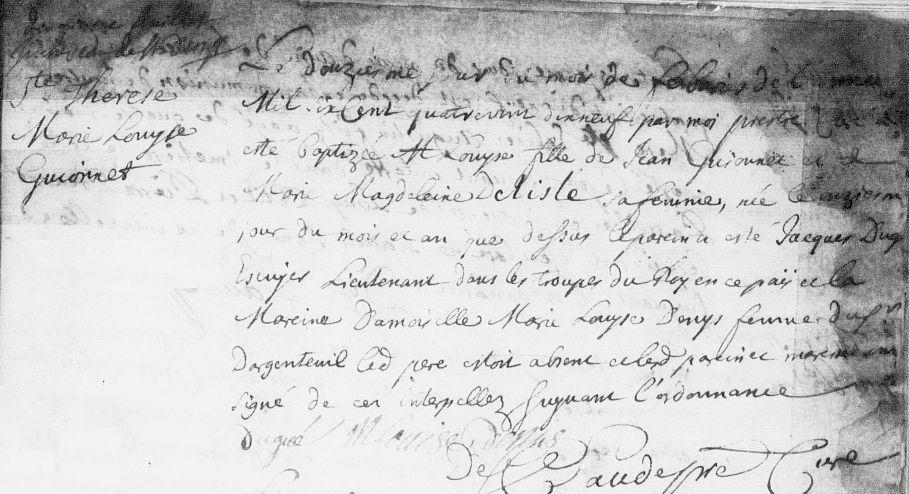 Ste Therese
Marie Louyse
Guionnet
Le douziesme jour du mois de febvrier de l'annee
Mil six Cent quatrevint dixneuf par moi prestre Curé a
esté baptizée M Louyse fille de Jean Guionnet et de
Marie Magdeleine Delisle sa femme, née le onziesm
jour du mois et an que dessus le parein a esté Jacques Dug
Escuyer Lieutenant dans les troupes du Roy en ce païs et la
Mareine Damoiselle Marie Louyse Denys femme du sr
Dargenteuil led pere estoit absent et lesd parein et mareine ont
signé de ce interpellez suyvant l'ordonnance
Dugué M louise denys
Caudespré Curé